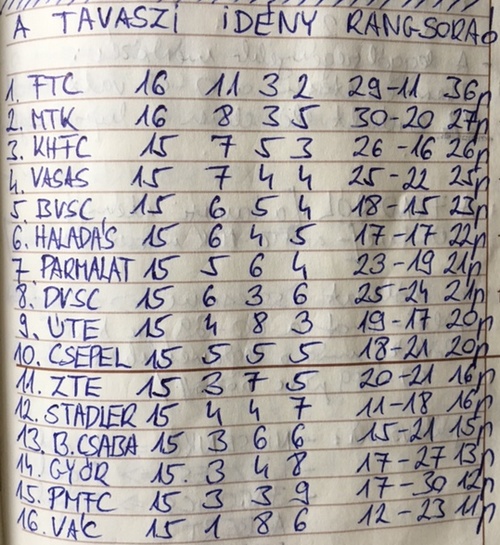 A TAVASZI IDÉNY RANGSORA
1. FTC 16 11 3 2 29-11 36p
2. MTK 16 8 3 5 30-20 27p
3. KHFC 15 7 5 3 26-16 26p
4. VASAS 15 7 4 4 25-22 25p
5. BVSC 15 6 5 4 18-15 23p
6. HALADÁS 15 6 4 5 17-17 22p
7. PARMALAT 15 5 6 4 23-19 21p
8. DVSC 15 6 3 6 25-24 21p
9. UTE 15 4 8 3 19-17 20p
10. CSEPEL 15 5 5 5 18-21 20p
11. ZTE 15 3 7 5 20-21 16p
12. STADLER 15 4 4 7 11-18 16p
13. B.CSABA 15 3 6 6 15-21 15p
14. GYŐR 15. 3 4 8 17-27 13p
15. PMFC 15 3 3 9 17-30 12p
16. VÁC 15 1 8 6 12-23 11p